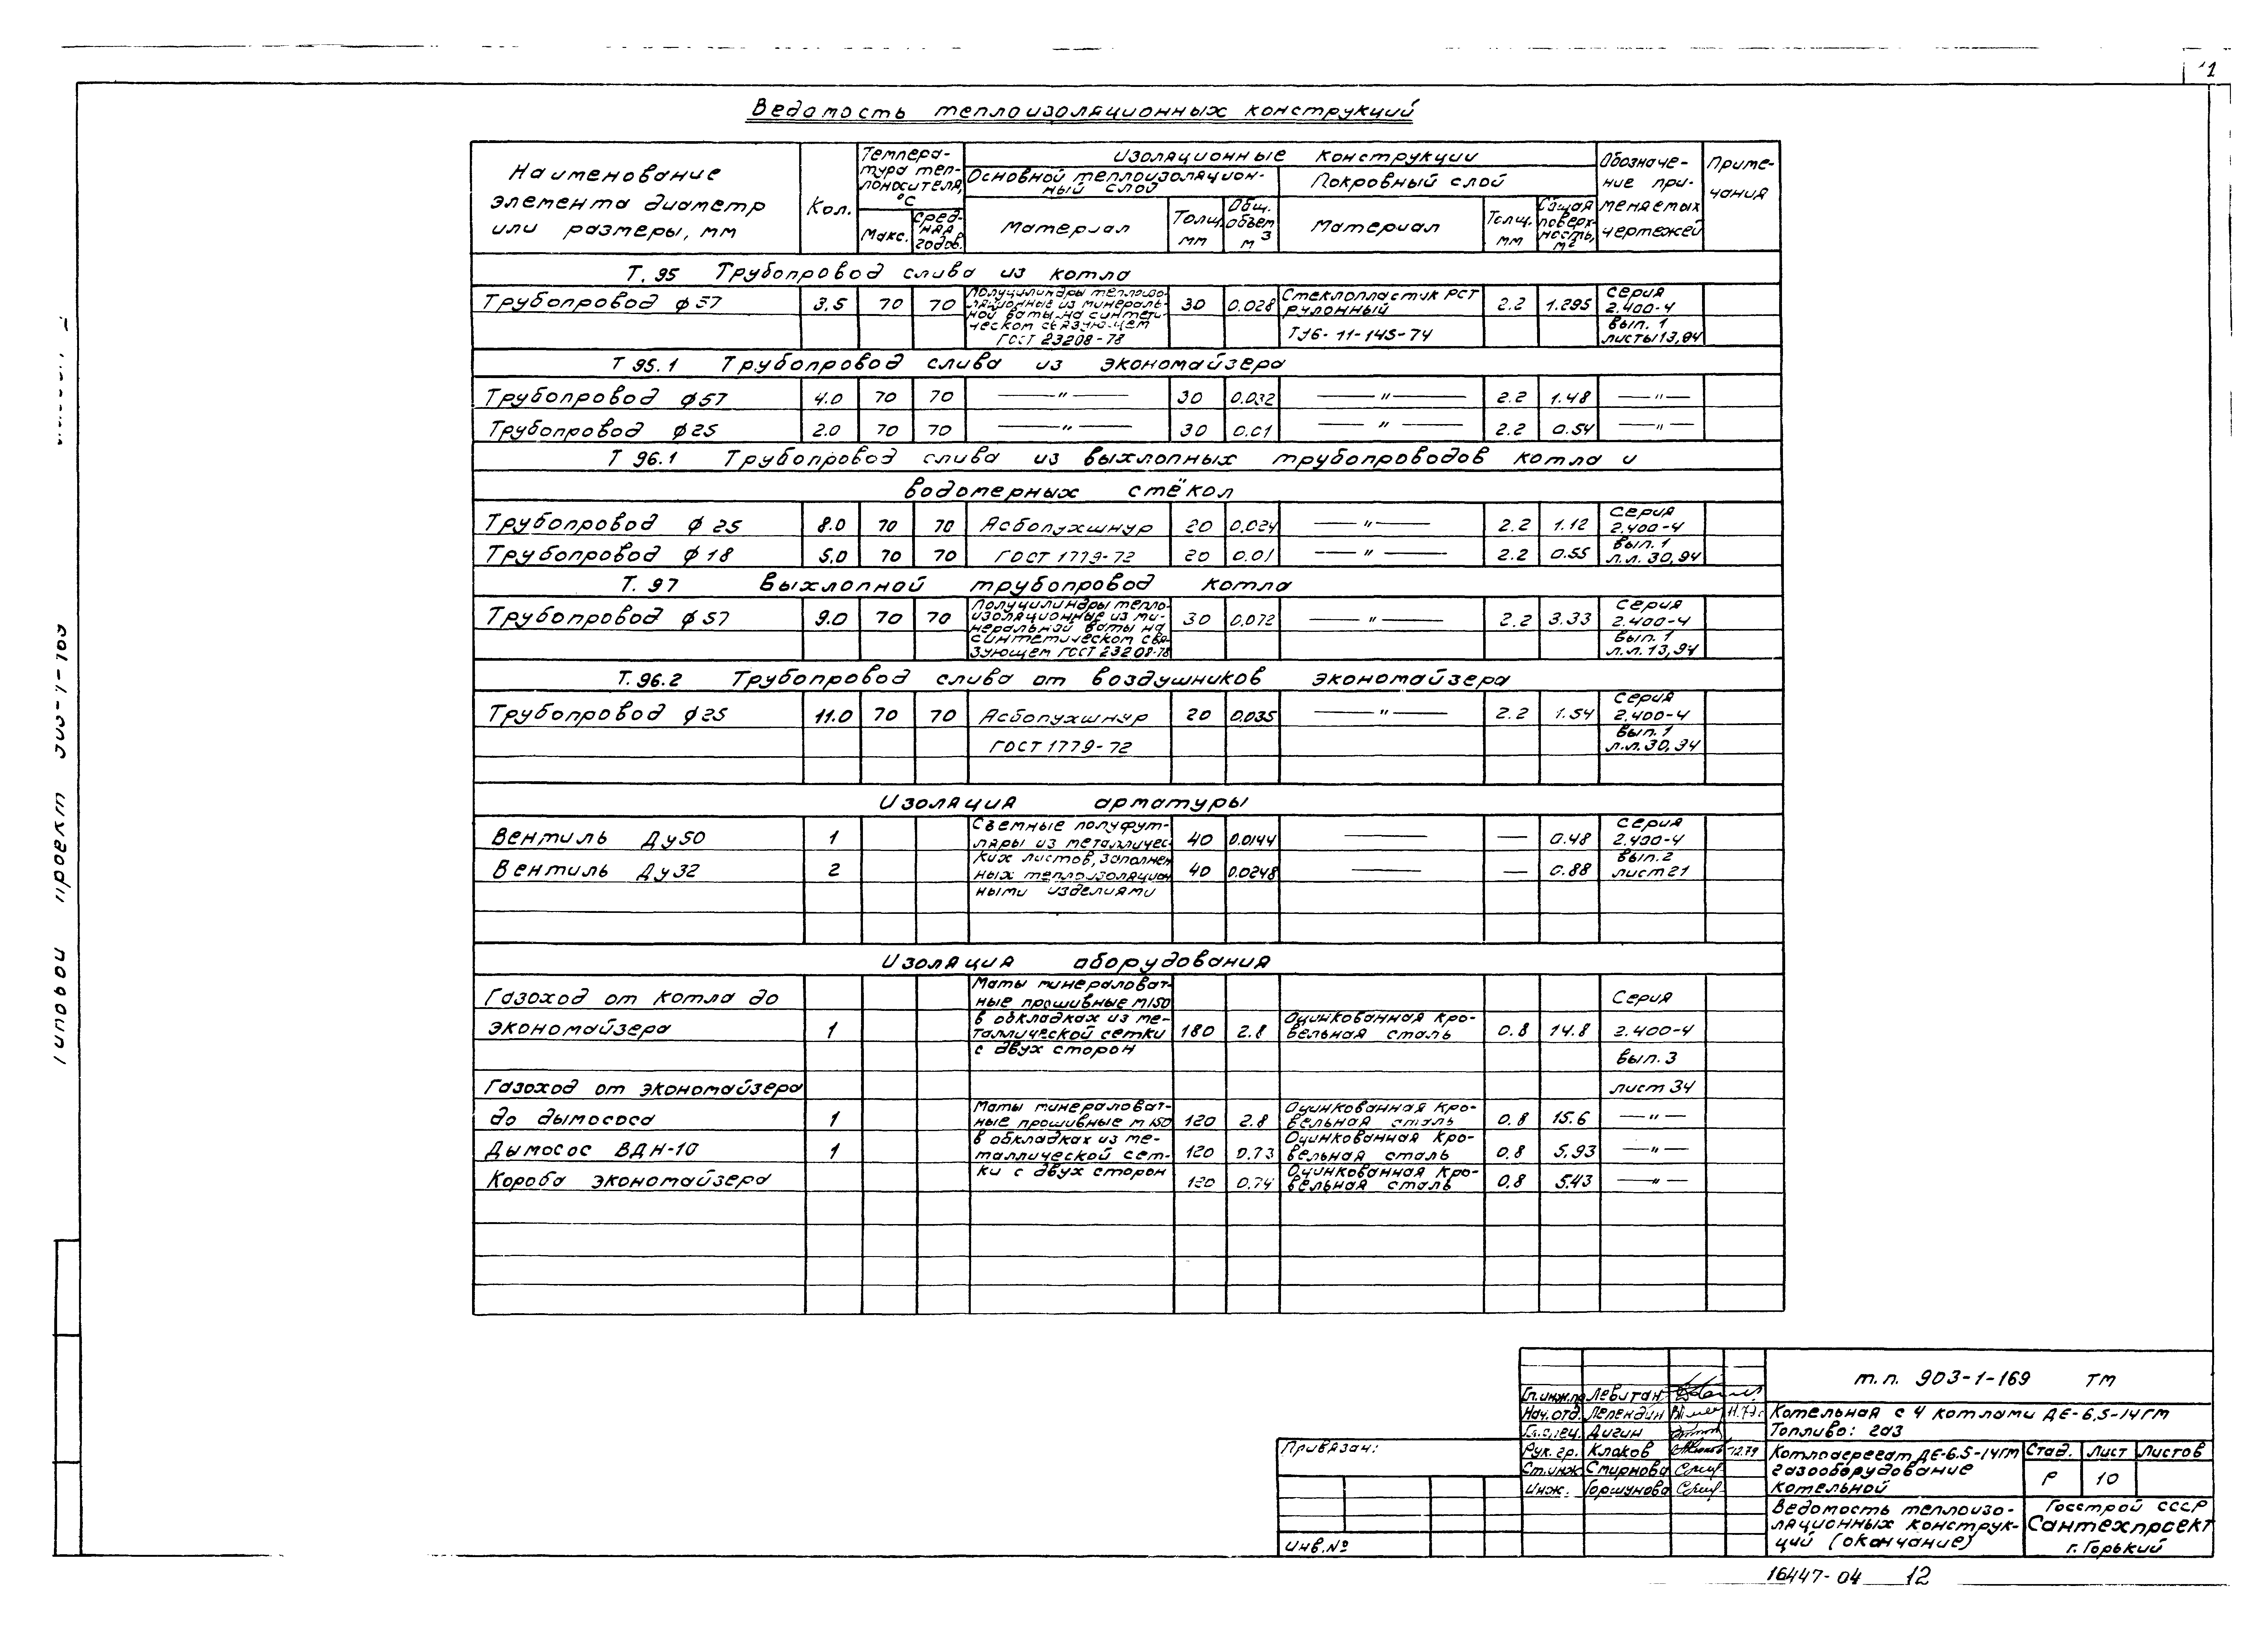 11
Ведомость теплоизоляционных конструкций
Наименование элемента диаметр или размеры, мм
Кол.
Температура теплоносителя, °С
Макс.
Средняя годов.
Изоляционные конструкции
Основной теплоизоляционный слой
Покровный слой
Материал
Толщ. мм
Общ. объем м3
Материал
Толщ. мм
Общая поверхность, м2
Обозначение применяемых чертежей
Примечания
Т. 95 Трубопровод слива из котла
Трубопровод ф 57 3,5 70 70 Полуцилиндры теплоизоляционные из минеральной ваты на синтетическом связующем ГОСТ 23208-78 30 0.028 Стеклопластик РСТ рулонный ТУ6-11-145-74 2.2 1.295 серия 2.400-4 вып. 1 листы 13,94
Т 95.1 Трубопровод слива из экономайзера
Трубопровод ф57 4.0 70 70 —"— 30 0.032 —"— 2.2 1.48 —"—
Трубопровод ф25 2.0 70 70 —"— 30 0.01 —"— 2.2 0.54 —"—
Т 96.1 Трубопровод слива из выхлопных трубопроводов котла и
водомерных стёкол
Трубопровод ф 25 8.0 70 70 Асбопухшнур 20 0.024 —"— 2.2 1.12 серия 2.400-4
Трубопровод ф 18 5,0 70 70 ГОСТ 1779-72 20 0.01 —"— 2.2 0.55 вып. 1 л.л. 30,94
Т. 97 Выхлопной трубопровод котла
Трубопровод ф 57 9.0 70 70 Полуцилиндры теплоизоляционные из минеральной ваты на синтетическом связующем ГОСТ 23208-78 30 0.072 —"— 2.2 3.33 серия 2.400-4 вып. 1 л.л. 13,94
Т. 96.2 Трубопровод слива от воздушников экономайзера
Трубопровод ф25 11.0 70 70 Асбопухшнур 20 0.035 —"— 2.2 1.54 серия 2.400-4
ГОСТ 1779-72 вып. 1 л.л. 30,94
Изоляция арматуры
Вентиль Ду50 1 Съемные полуфутляры из металличес- 40 0.0144 — — 0.48 серия 2.400-4
Вентиль Ду32 2 ких листов, заполненных теплоизоляцион 40 0.0248 — — 0.88 вып. 2 лист 21
ными изделиями
Изоляция оборудования
Газоход от котла до Маты минераловатные прошивные М150 Серия
экономайзера 1 в обкладках из металлической сетки 180 2.8 Оцинкованная кровельная сталь 0.8 14.8 2.400-4
с двух сторон вып. 3
Газоход от экономайзера лист 34
до дымососа 1 Маты минераловатные прошивные М150 120 2.8 Оцинкованная кровельная сталь 0.8 15.6 —"—
Дымосос ВДН-10 1 в обкладках из металлической сет- 120 0.73 Оцинкованная кровельная сталь 0.8 5.93 —"—
Короба экономайзера ки с двух сторон 120 0.74 Оцинкованная кровельная сталь 0.8 5.43 —"—
Типовой проект 903-1-169
т.п. 903-1-169 ТМ
Гл.инж.пр Левитан
Нач.отд. Лепендин
Гл.спец. Дигин
Рук. гр. Клоков 12.79
Ст.инж Смирнова
Инж. Горшунова
Котельная с 4 котлами ДЕ-6,5-14ГМ
Топливо: газ
Котлоагрегат ДЕ-6.5-14ГМ
газооборудование
котельной
Стад. Лист Листов
Р 10
Ведомость теплоизо-
ляционных конструк-
ций (окончание)
Госстрой СССР
Сантехпроект
г. Горький
Привязан:
Инв.№
16447-04 12